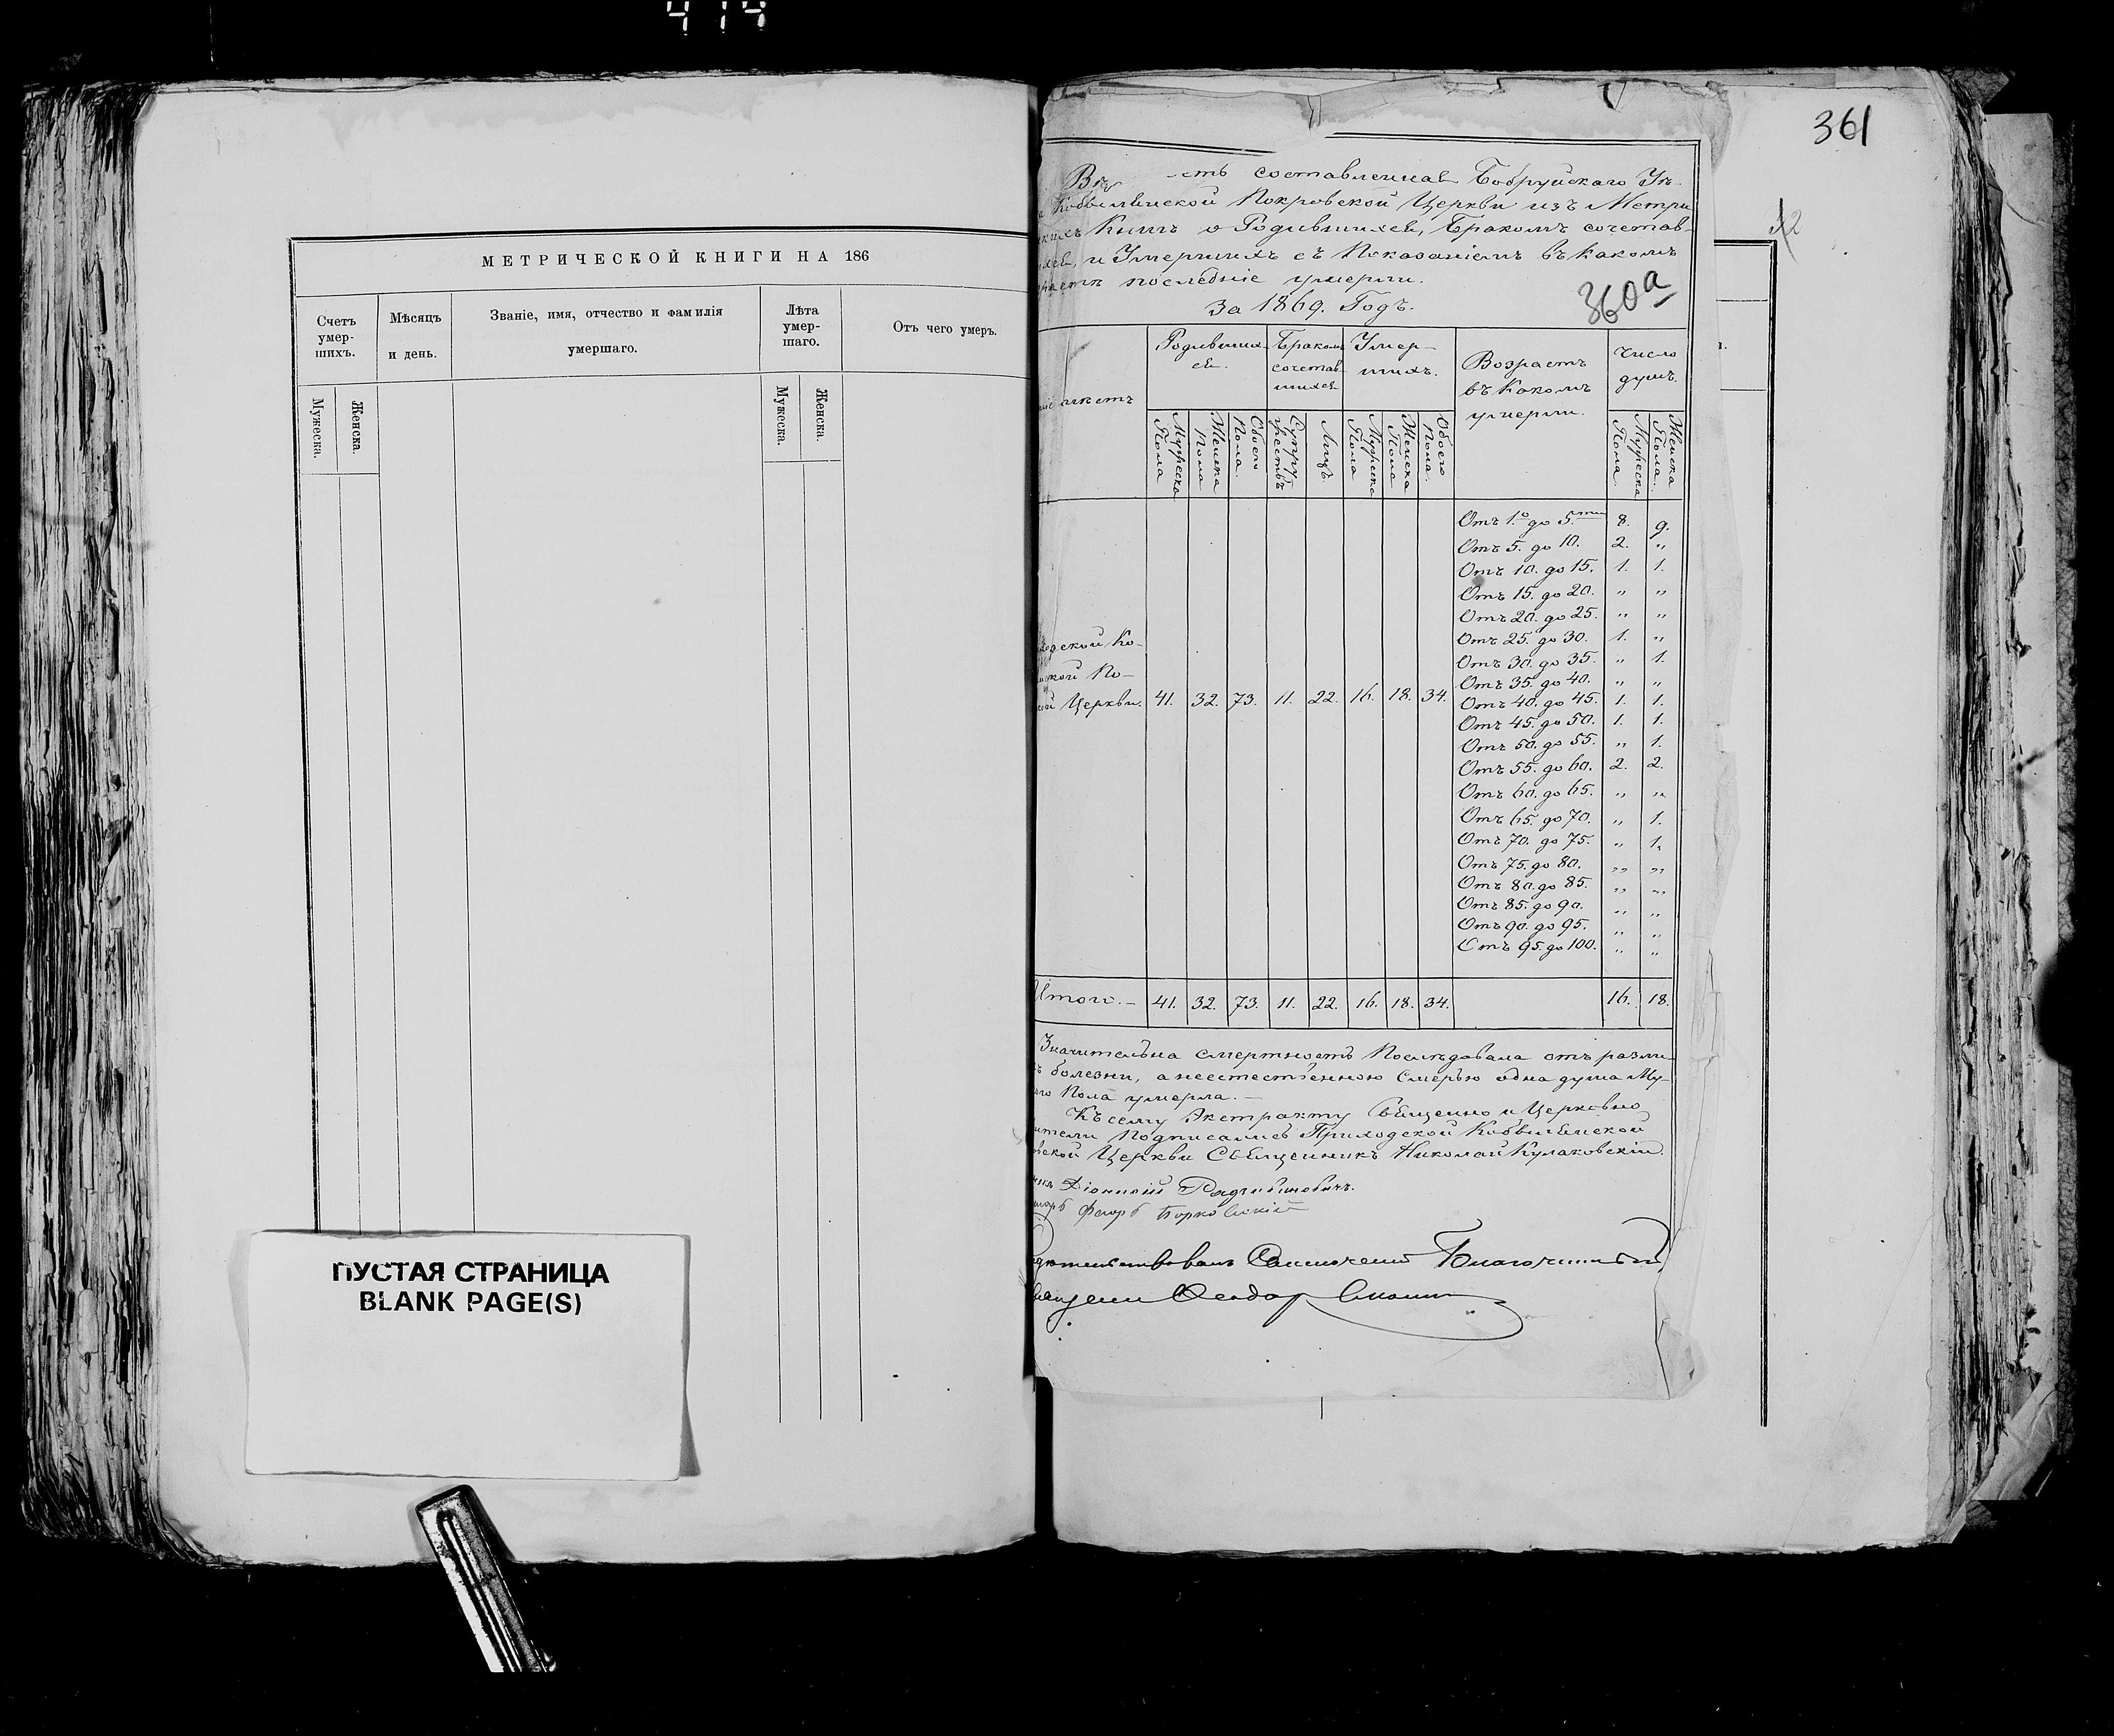 414
МЕТРИЧЕСКОЙ КНИГИ НА 186
Счетъ умер-шихъ.
Мѣсяцъ и день.
Званіе, имя, отчество и фамилія умершаго.
Лѣта умер-шаго.
Отъ чего умеръ.
Мужеска.
Женска.
Мужеска.
Женска.
ПУСТАЯ СТРАНИЦА
BLANK PAGE(S)
361
сть составленная Бобруйскаго Уѣ-
Покровской Церкви изъ Метри
Книгъ о Родившихся, Бракомъ сочетав-
и Умершихъ съ Показаніемъ въ какомъ
последніе умерли.
За 1869. Годъ.
360а
Родивших-ся.
Бракомъ сочетав-шихся
Умер-шихъ.
Возрастъ въ Какомъ умерли.
Число душъ.
Мужеска Пола
Женска Пола
Обоего Пола.
Супружествъ
Лицъ.
Мужеска Пола
Женска Пола
Обоего Пола.
Мужеска Пола.
Женска Пола.
Отъ 1.о до 5.ти 8. 9.
Отъ 5. до 10. 2. „
Отъ 10. до 15. 1. 1.
Отъ 15. до 20. „ „
Отъ 20. до 25. „ „
Отъ 25. до 30. 1. „
Отъ 30. до 35. „ 1.
Отъ 35. до 40. „ „
Отъ 40. до 45. 1. 1.
Отъ 45. до 50. 1. 1.
Отъ 50. до 55. „ 1.
Отъ 55. до 60. 2. 2.
Отъ 60. до 65. „ „
Отъ 65. до 70. „ 1.
Отъ 70. до 75. „ 1.
Отъ 75. до 80. „ „
Отъ 80. до 85. „ „
Отъ 85. до 90. „ „
Отъ 90. до 95. „ „
Отъ 95. до 100. „ „
одской Ко-
ской По-
Церкви. 41. 32. 73. 11. 22. 16. 18. 34.
Итого.- 41. 32. 73. 11. 22. 16. 18. 34. 16. 18.
Значительна смертность Последовала отъ разли-
болезни, а неестественною Смертью одна душа Му-
Пола умерла.-
Къ сему Экстракту Священно и Церковно
Подписались Приходской
Церкви Священникъ Николай Кулаковскій.
Діонисій
Борковскій
Благочинный